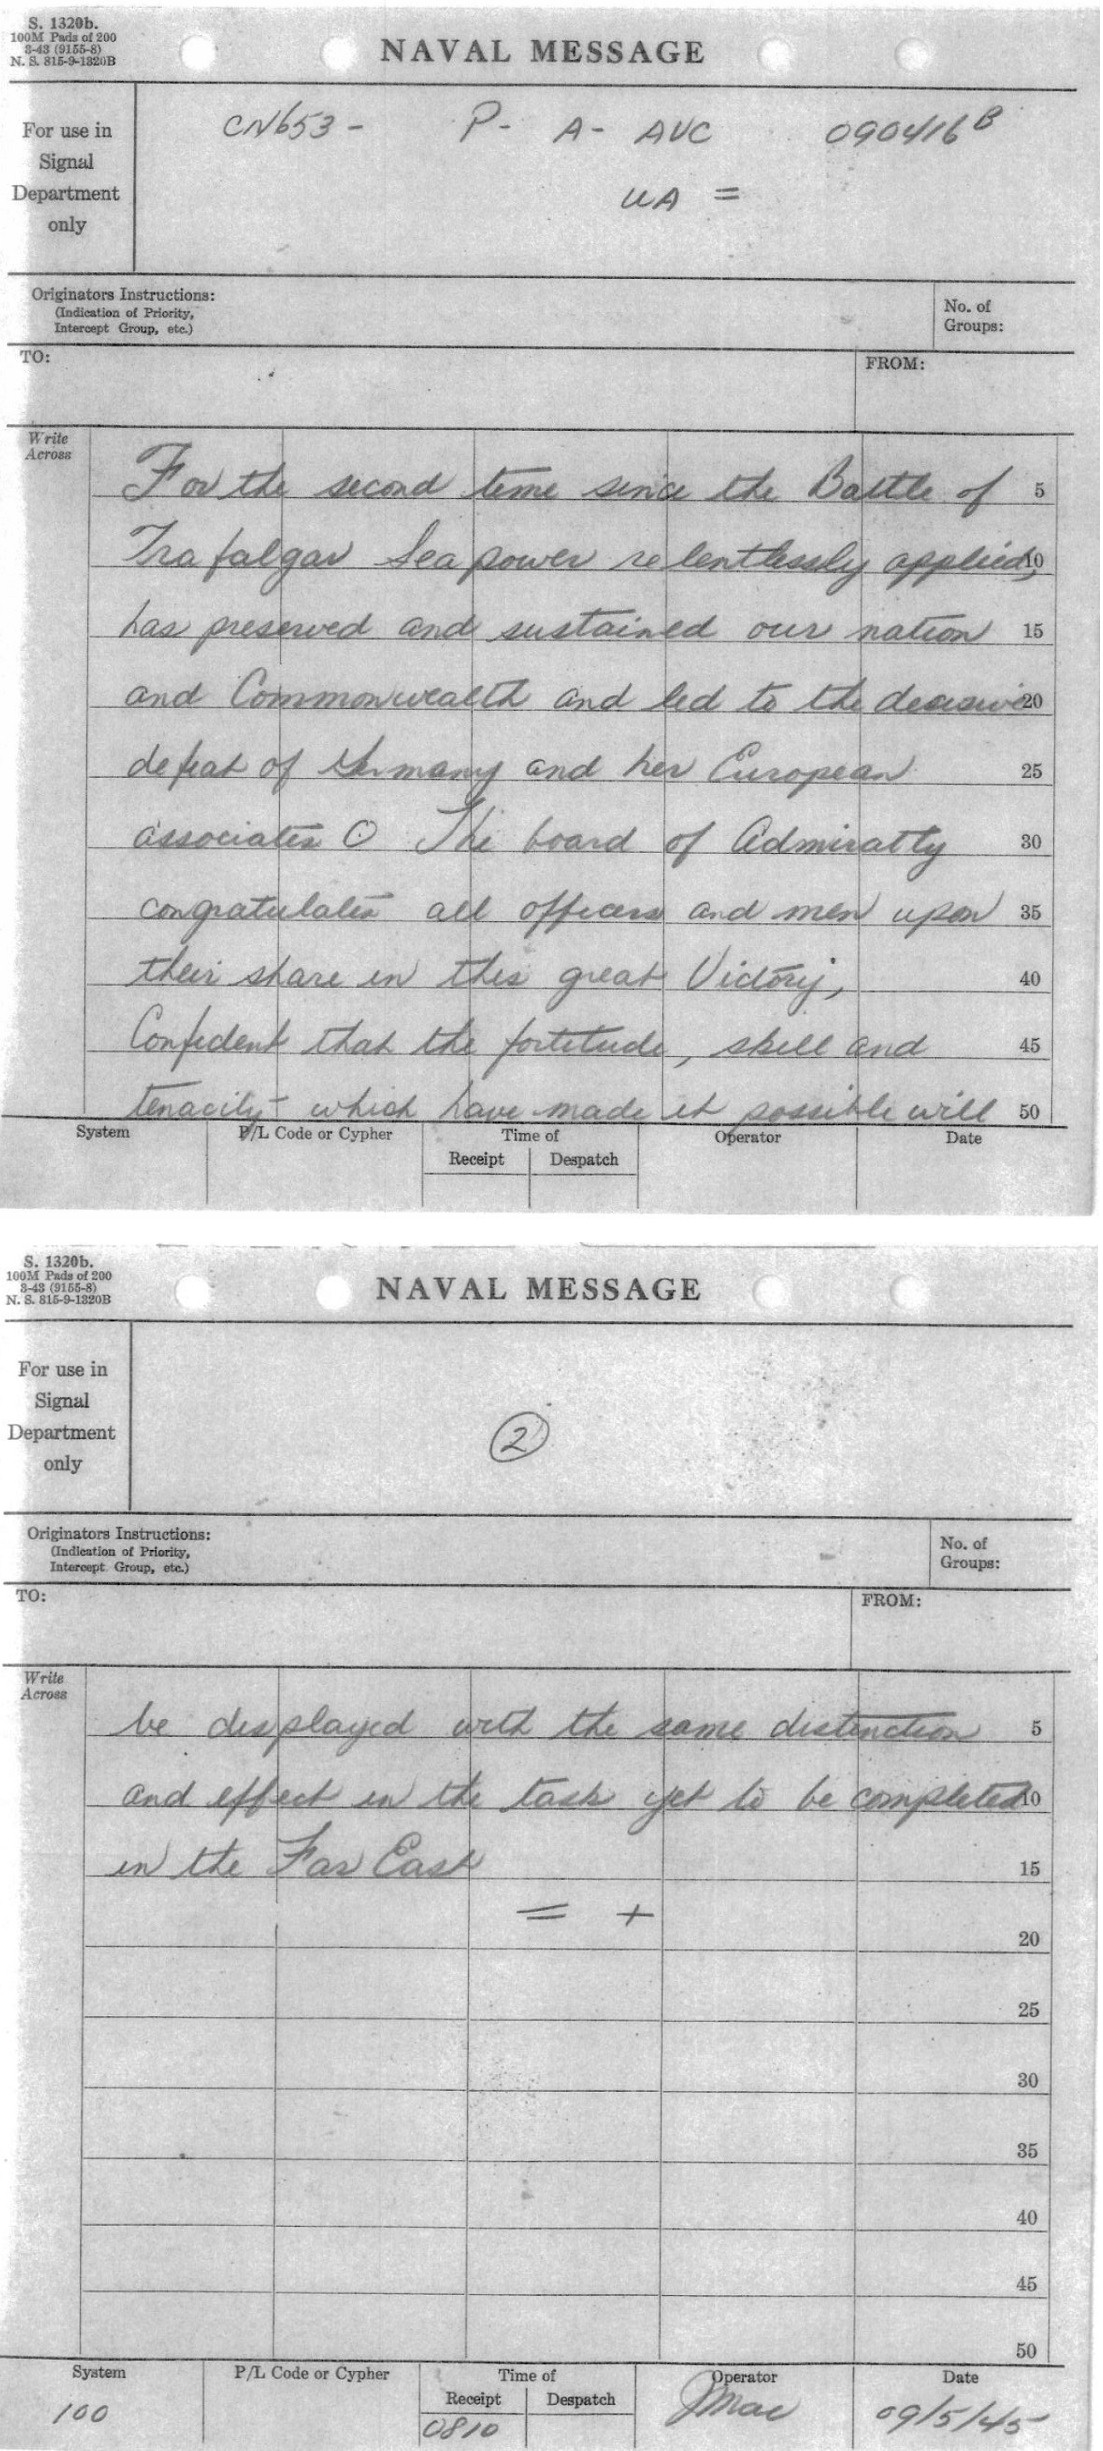 S. 1320b.
100M Pads of 200
3-43 (9155-8)
N. S. 815-9-1320B
NAVAL MESSAGE
For use in
Signal
Department
only
CN653 - P - A - AVC 090416B
UA =
Originators Instructions:
(Indication of Priority,
Intercept Group, etc.)
No. of
Groups:
TO:
FROM:
Write
Across
For the second time since the Battle of 5
Trafalgar Sea power relentlessly applied, 10
has preserved and sustained our nation 15
and Commonwealth and led to the decisive 20
defeat of Germany and her European 25
associates O The board of Admiralty 30
congratulates all officers and men upon 35
their share in this great Victory, 40
Confident that the fortitude, skill and 45
tenacity which have made it possible will 50
System
P/L Code or Cypher
Time of
Receipt
Despatch
Operator
Date
S. 1320b.
100M Pads of 200
3-43 (9155-8)
N. S. 815-9-1320B
NAVAL MESSAGE
For use in
Signal
Department
only
2
Originators Instructions:
(Indication of Priority,
Intercept Group, etc.)
No. of
Groups:
TO:
FROM:
Write
Across
be displayed with the same distinction 5
and effect in the task yet to be completed 10
in the Far East 15
= +
20
25
30
35
40
45
50
System
P/L Code or Cypher
Time of
Receipt
Despatch
Operator
Date
100
0810
JMac
09/5/45